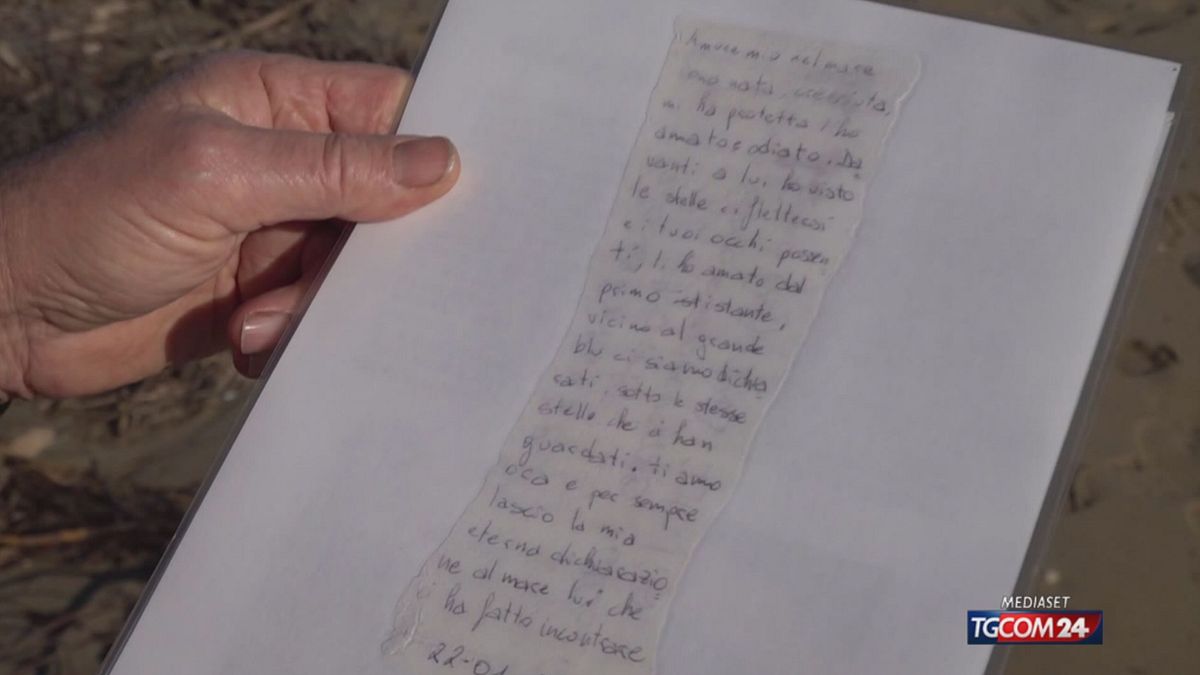 Amore mio nel mare
ono nata, cresciuta,
mi ha protetta l ho
amato e odiato. Da
vanti a lui ho visto
le stelle riflettersi
e i tuoi occhi possen
ti, li ho amato dal
primo ististante,
vicino al grande
blu ci siamo dichia
rati, sotto le stesse
stelle che ci han
guardati. ti amo
ora e per sempre
lascio la mia
eterna dichiarazio
ne al mare lui che
ci ha fatto incontrare
22-01
MEDIASET
TGCOM24